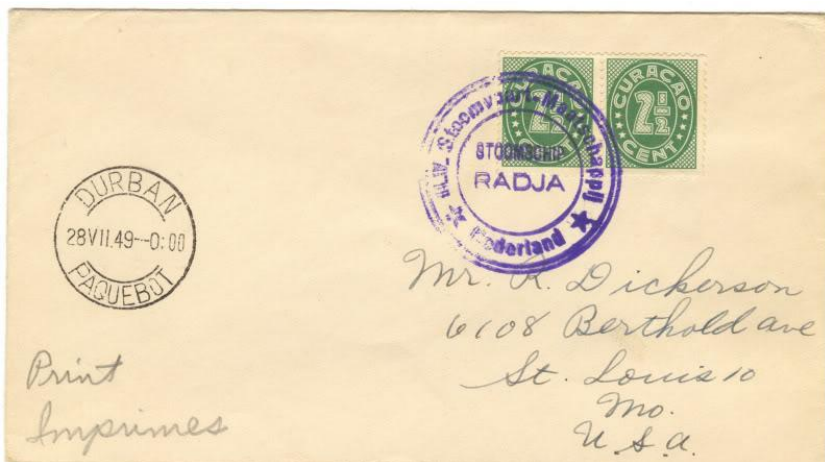 CURAÇAO
2½
CENT
CURAÇAO
2½
CENT
N.V. Stoomvaart-Maatschappij
STOOMSCHIP
RADJA
Nederland
DURBAN
28VII.49--0:00
PAQUEBOT
Mr. R. Dickerson
6108 Berthold ave
St. Louis 10
Mo.
U.S.A.
Print
Imprimes